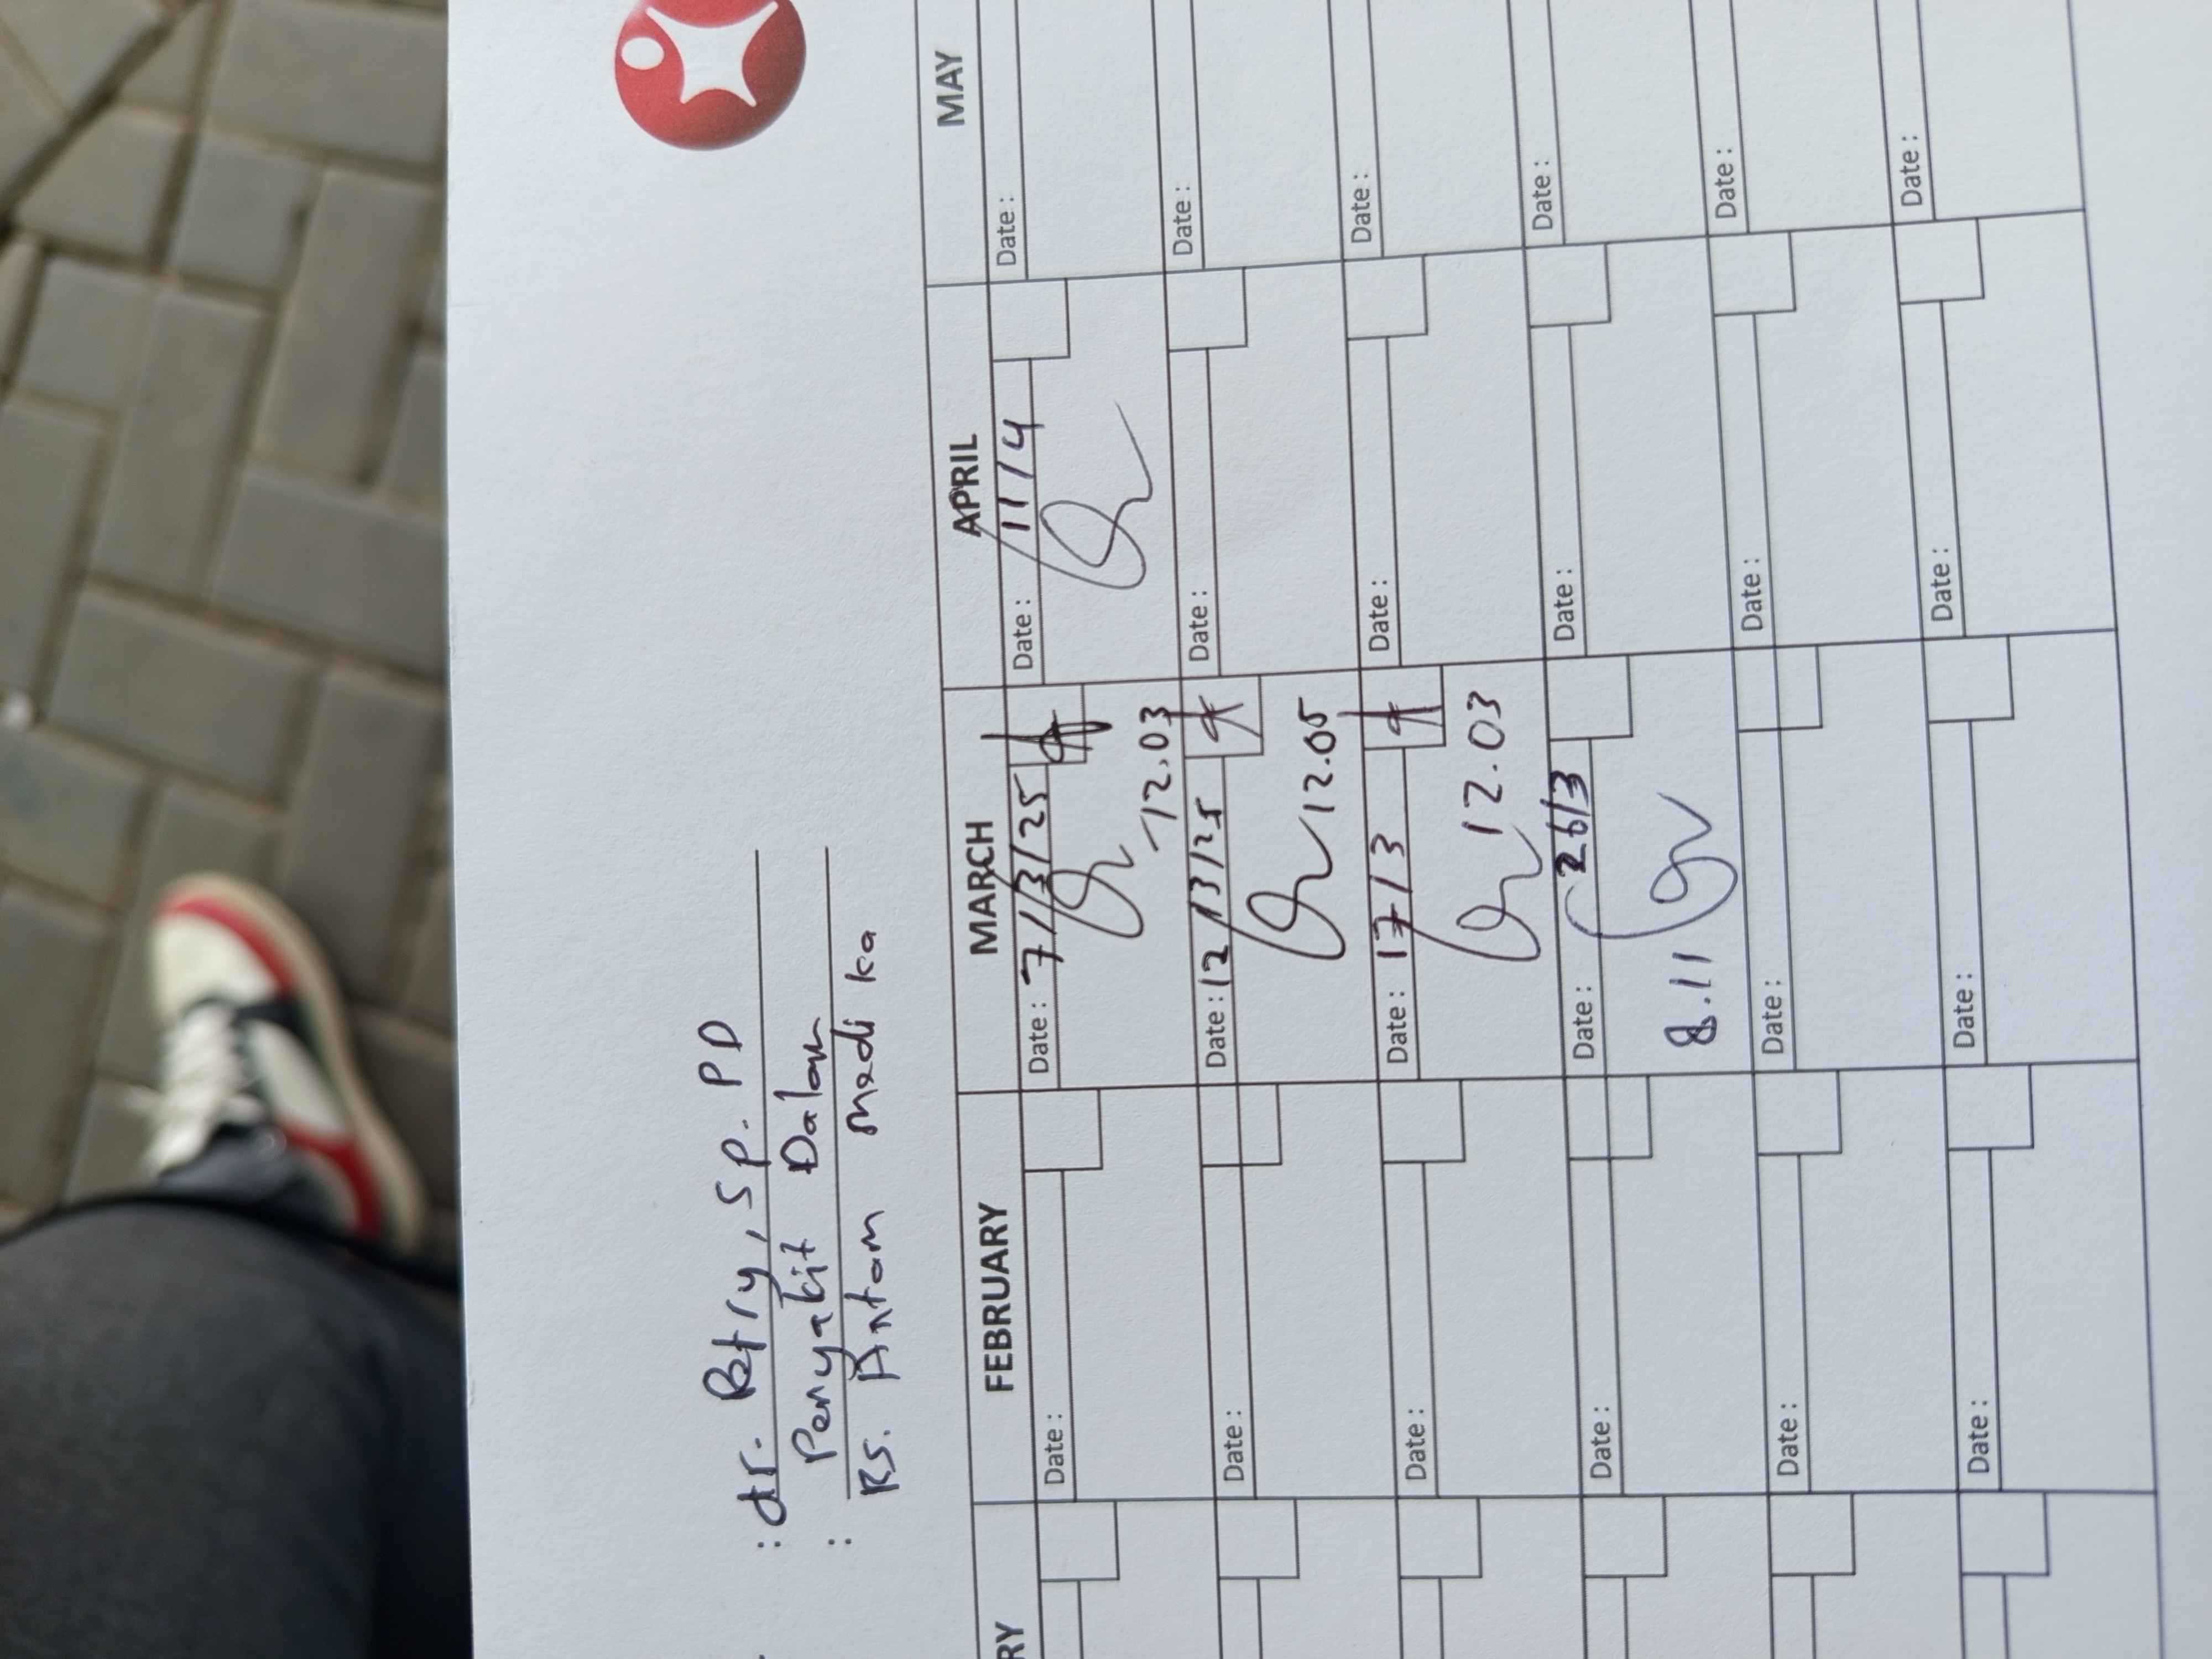 : dr. Retry, SP. PD
: Penyakit Dalam
RS. Antam Medika
RY FEBRUARY MARCH APRIL MAY
Date : Date : 7/3/25 Date : 11/4 Date :
12.03
Date : Date : 12/3/25 Date : Date :
12.05
Date : Date : 17/3 Date : Date :
12.03
Date : Date : 26/3 Date : Date :
8.11
Date : Date : Date : Date :
Date : Date : Date : Date :